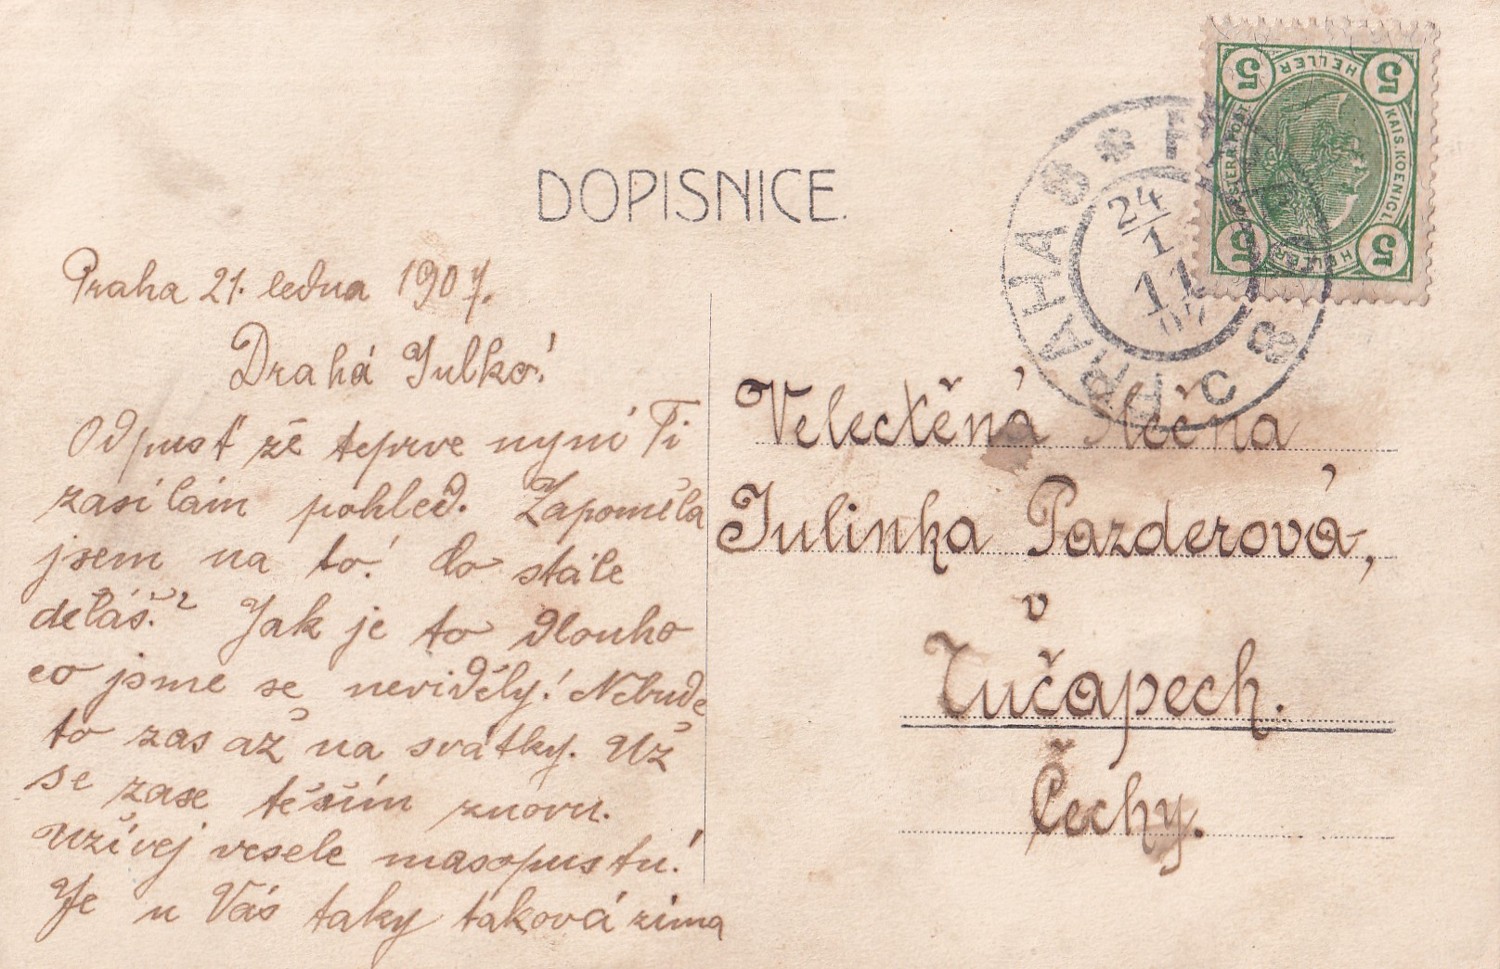 DOPISNICE.
Praha 21. ledna 1907.
Drahá Julko!
Odpusť že teprve nyní Ti
zasílám pohled. Zapoměla
jsem na to! Co stále
děláš? Jak je to dlouho
co jsme se neviděly! Nebude
to zas až na svátky. Už
se zase těším znovu.
Užívej vesele masopustu!
Je u Vás taky taková zima
5 HELLER 5
KAIS. KOENIGL.
5 HELLER 5
PRAHA
24/1
11
07
PRAG
C
Velectěná slečna
Julinka Pazderová,
v
Tučapech.
Čechy.